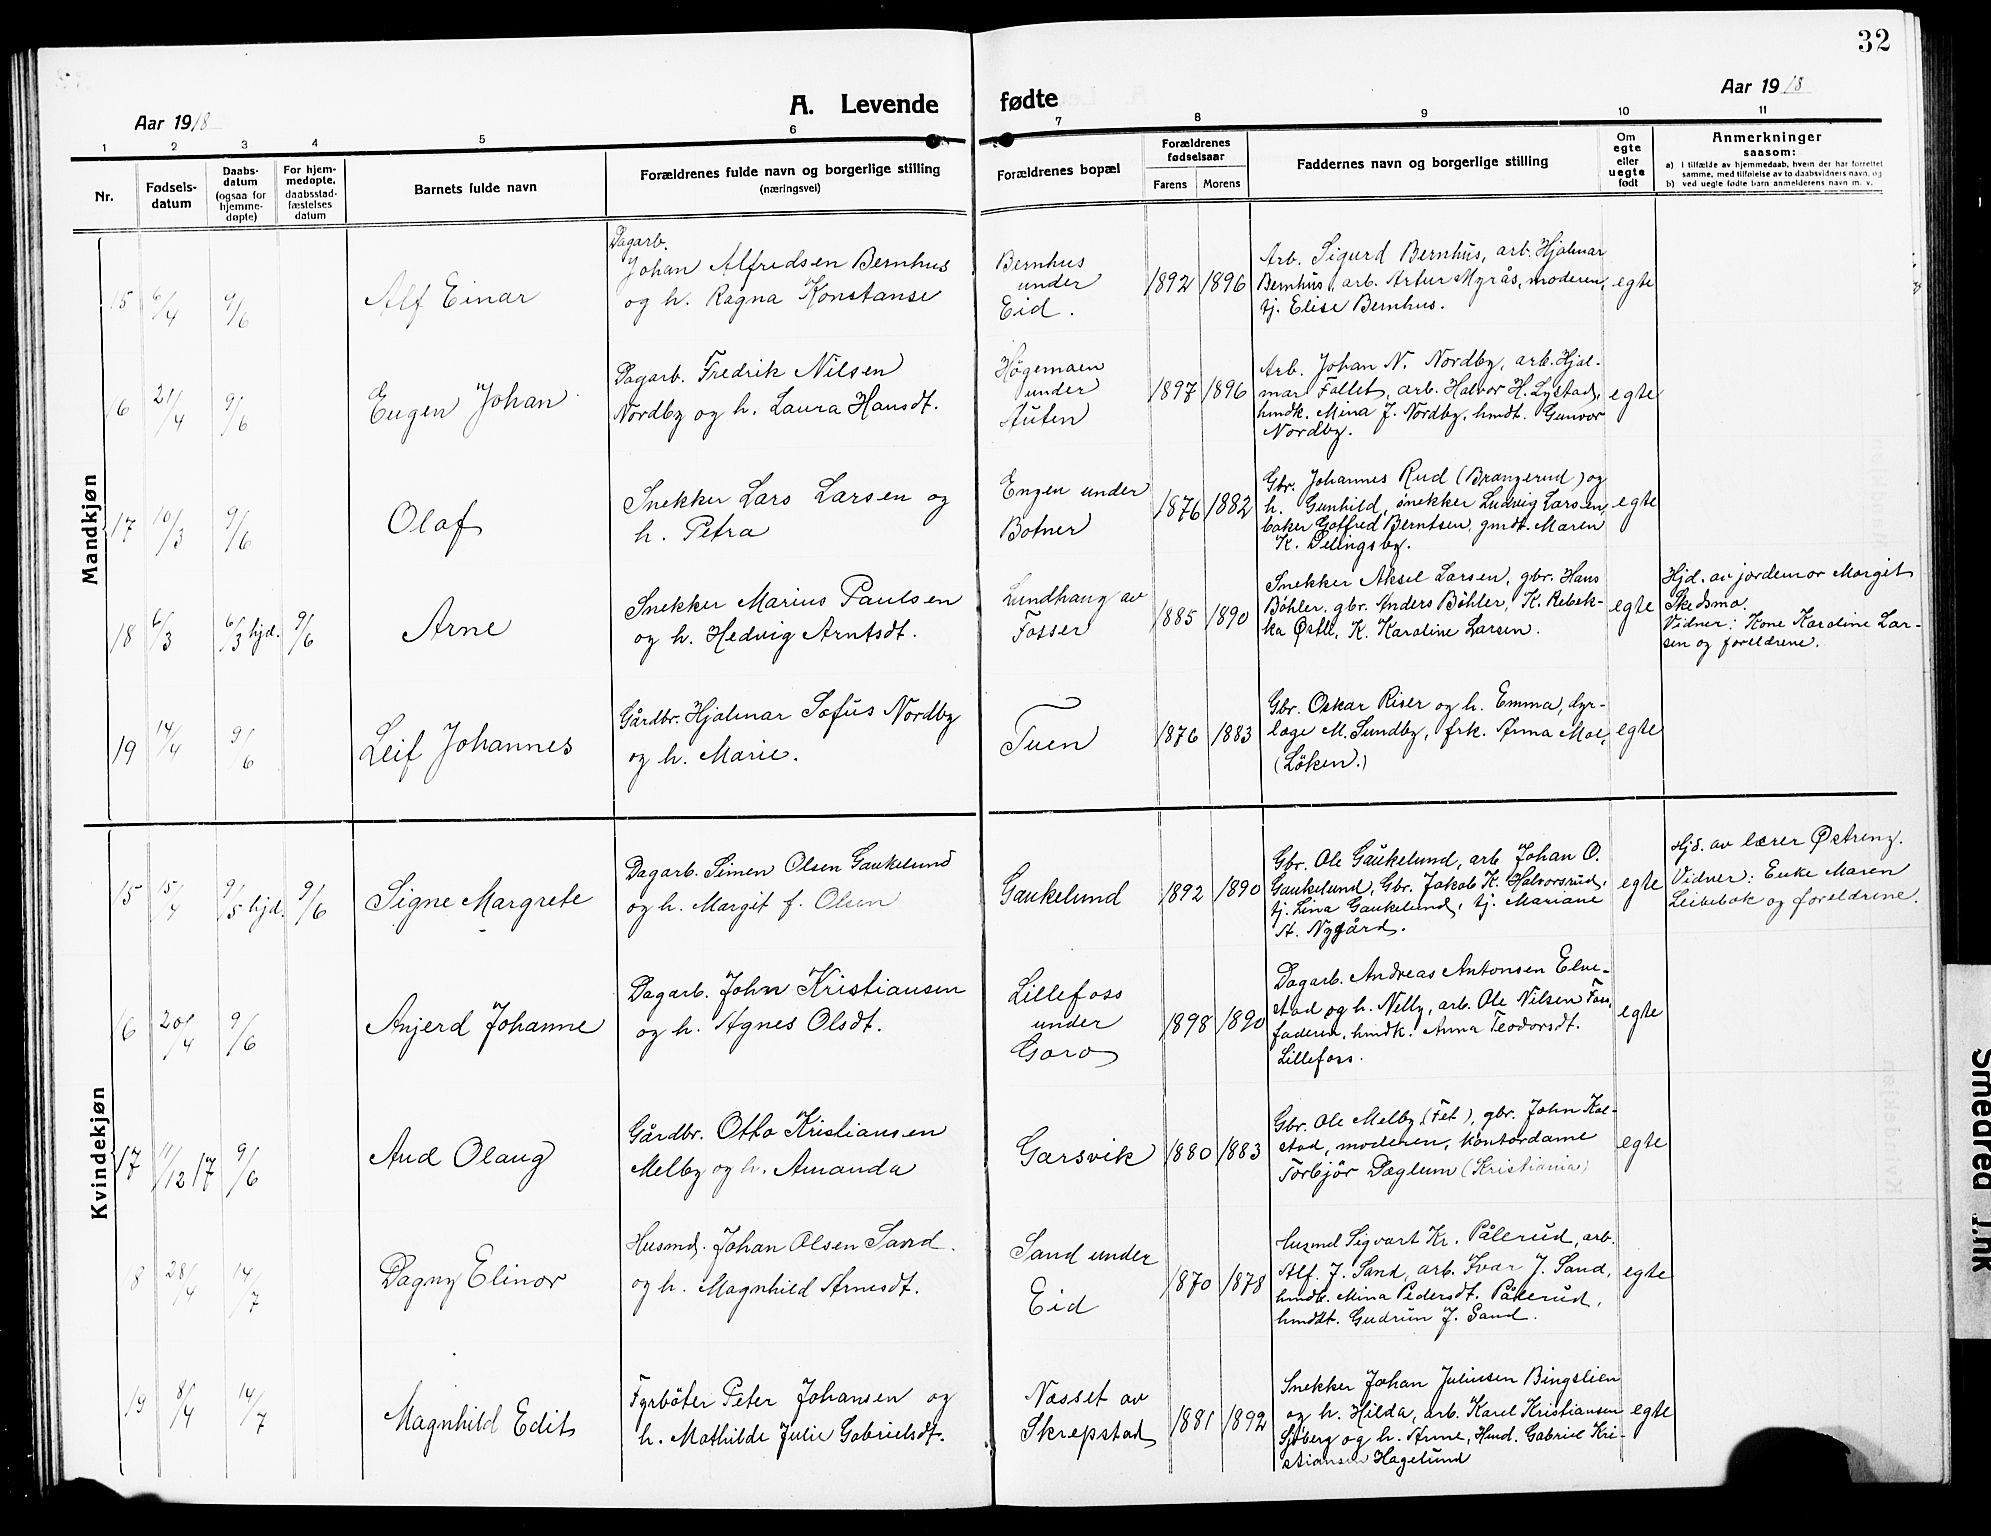 32
Aar 1918
A. Levende fødte
Aar 1918
1 2 3 4 5 6 7 8 9 10 11
Nr.
Fødsels-
datum
Daabs-
datum
(ogsaa for
hjemme-
døpte)
For hjem-
medøpte,
daabsstad-
fæstelses
datum
Barnets fulde navn
Forældrenes fulde navn og borgerlige stilling
(næringsvei)
Forældrenes bopæl
Forældrenes
fødselsaar
Farens Morens
Faddernes navn og borgerlige stilling
Om
egte
eller
uegte
født
Anmerkninger
saasom:
a) I tilfælde av hjemmedaab, hvem der har forrettet
samme, med tilføielse av to daabsvidners navn, og
b) ved uegte fødte barn anmelderens navn m. v.
Mandkjøn
15 6/4 9/6
Alf Einar
Dagarb.
Johan Alfredsen Bernhus
og h. Ragna Konstanse
Bernhus
under
Eid.
1892 1896
Arb. Sigurd Bernhus, arb. Hjalmar
Bernhus, arb. Artur Myrås, moderen,
tj. Elise Bernhus.
egte
16 21/4 9/6
Eugen Johan
Dagarb. Fredrik Nilsen
Nordby og h. Laura Hansdt.
Høgemoen
under
Auten
1897 1896
Arb. Johan N. Nordby, arb. Hjal-
mar Fallet, arb. Halvor H. Lystad,
hmdk. Mina J. Nordby, hmdt. Gunvor
Nordby.
egte
17 10/3 9/6
Olaf
Snekker Lars Larsen og
h. Petra
Engen under
Botner
1876 1882
Gbr. Johannes Rud (Brangerud) og
h. Gunhild, snekker Ludvig Larsen,
baker Gotfred Berntsen, gmdt. Maren
K. Delingsby.
egte
18 6/3 6/3 hjd. 9/6
Arne
Snekker Marius Paulsen
og h. Hedvig Arntsdt.
Lundhaug av
Fosser
1885 1890
Snekker Aksel Larsen, gbr. Hans
Böhler, gbr. Anders Böhler, K. Rebek-
ka Østli, K. Karoline Larsen.
egte
Hjd. av jordemor Margit
Skedsmo.
Vidner: Kone Karoline Lar-
sen og foreldrene.
19 14/4 9/6
Leif Johannes
Gårdbr. Hjalmar Sofus Nordby
og h. Marie.
Tuen
1876 1883
Gbr. Oskar Riser og h. Emma, dyr-
læge M. Sundby, frk. Anna Moe,
(Löken.)
egte
Kvindekjøn
15 15/4 9/5 hjd. 9/6
Signe Margrete
Dagarb. Simen Olsen Gaukelund
og h. Margit f. Olsen
Gaukelund
1892 1890
Gbr. Ole Gaukelund, arb Johan O.
Gaukelund, Gbr. Jakob K. Halvorsrud,
tj. Lina Gaukelund, tj. Mariane
A. Nygård.
egte
Hjd. av lærer Østreng.
Vidner: Enke Maren
Leirbæk og foreldrene.
16 20/4 9/6
Anjerd Johanne
Dagarb. John Kristiansen
og h. Agnes Olsdt.
Lillefoss
under
Garo
1898 1890
Dagarb. Andreas Antonsen Elve-
stad og h. Nelly, arb. Ole Nilsen Foss,
faderen, hmdk. Anna Teodorsdt.
Lillefoss.
egte
17 11/12 17 9/6
Aud Olaug
Gårdbr. Otto Kristiansen
Melby og h. Amanda
Garsvik
1880 1883
Gbr. Ole Melby (Fet), gbr. John Kol-
stad, moderen, kontordame
Torbjör Dæglum (Kristiania)
egte
18 28/4 14/7
Dagny Elinor
Husmd. Johan Olsen Sand.
og h. Magnhild Arnesdt.
Sand under
Eid
1870 1878
Husmd Sigvart Kr. Pålerud, arb.
Alf. J. Sand, arb. Ivar J. Sand,
hmdk. Mina Pedersdt. Pålerud,
hmddt. Gudrun J. Sand.
egte
19 8/4 14/7
Magnhild Edit
Fyrböter Peter Johansen og
h. Mathilde Julie Gabrielsdt.
Næsset av
Skrepstad
1881 1892
Snekker Johan Juliusen Bingslien
og h. Hilda, arb. Karel Kristiansen
Sjöberg og h. Anne, Hmd. Gabriel Kri-
stiansen Hagelund
egte
Smedrød J.nk